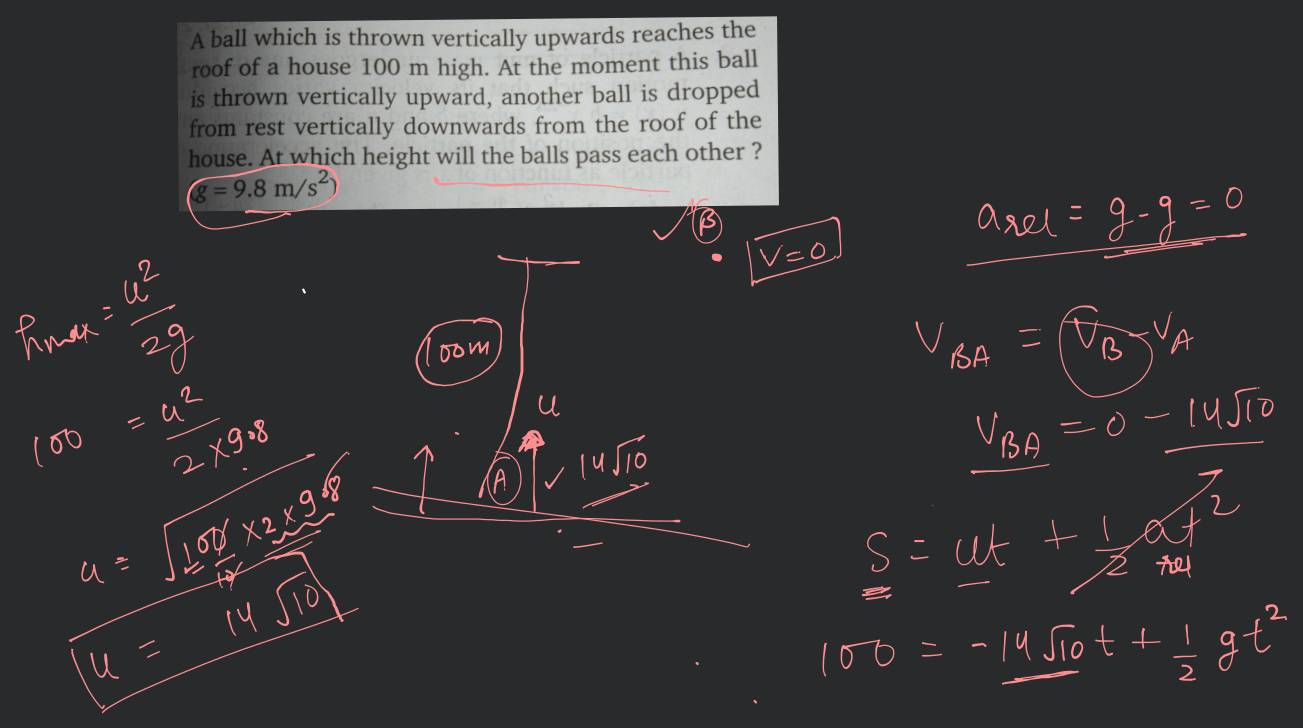 A ball which is thrown vertically upwards reaches the
roof of a house 100 m high. At the moment this ball
is thrown vertically upward, another ball is dropped
from rest vertically downwards from the roof of the
house. At which height will the balls pass each other ?
(g = 9.8 m/s²)
B
V=0
a rel = g-g = 0
hmax = u²/2g
100 = u²/2×9.8
u = √100×2×9.8
10
u = 14√10
100m
u
A
14√10
V BA = V B - V A
V BA = 0 - 14√10
S = ut + 1/2 at²
rel
100 = -14√10 t + 1/2 gt²